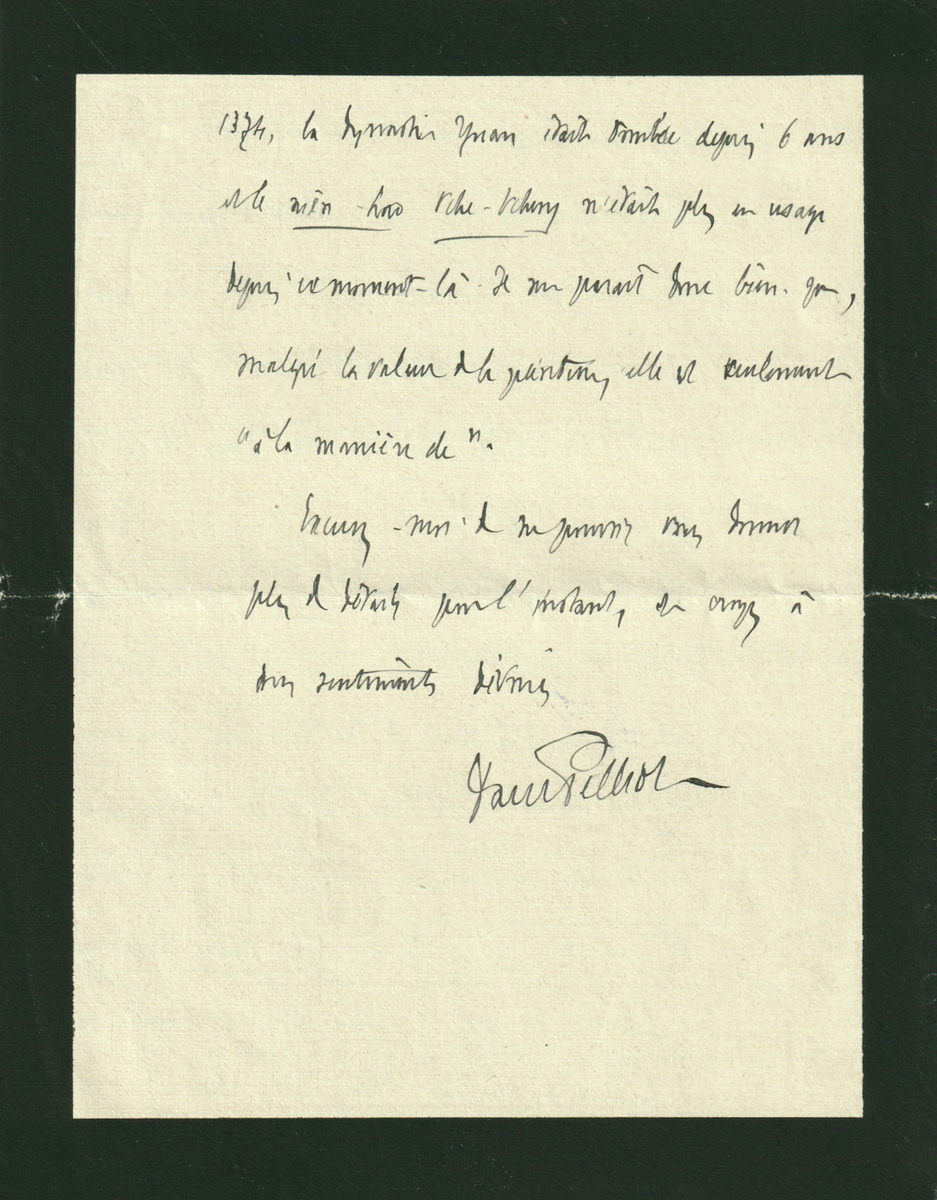 1374, la dynastie Yuan était tombée depuis 6 ans
et le nien-hao tche-tcheng n'était plus en usage
depuis ce moment-là. Il me paraît donc bien que,
malgré la valeur de la peinture, elle est seulement
"à la manière de".
Excusez-moi de ne pouvoir vous donner
plus de détails pour l'instant, et croyez à
mes sentiments dévoués
Paul Pelliot